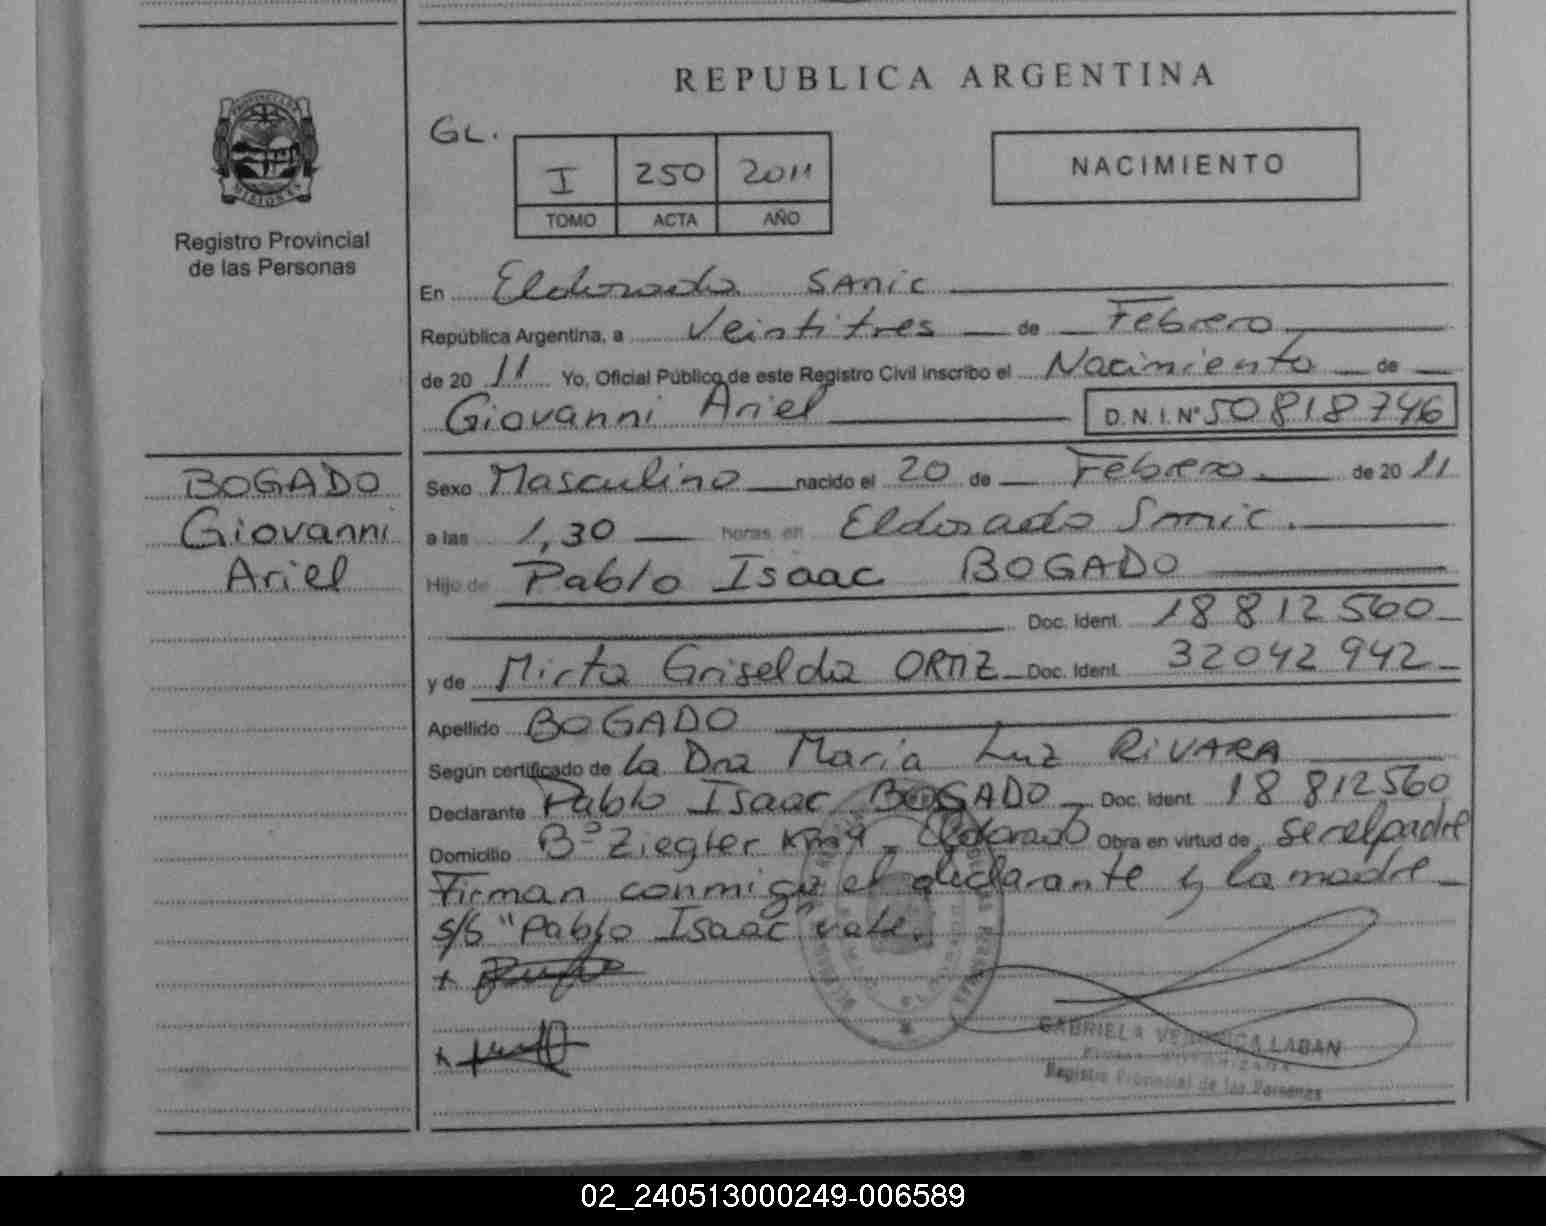 REPUBLICA ARGENTINA
GL.
I 250 2011
TOMO ACTA AÑO
NACIMIENTO
Registro Provincial
de las Personas
En Eldorado SAMIC
República Argentina, a Veintitres de Febrero
de 20 11 Yo, Oficial Público de este Registro Civil inscribo el Nacimiento de
Giovanni Ariel D.N.I.Nº 50818746
BOGADO
Giovanni
Ariel
Sexo Masculino nacido el 20 de Febrero de 20 11
a las 1,30 horas en Eldorado Samic.
Hijo de Pablo Isaac BOGADO
Doc. Ident. 18812560
y de Mirta Griselda ORTIZ Doc. Ident. 32042942
Apellido BOGADO
Según certificado de la Dra Maria Luz RIVARA
Declarante Pablo Isaac BOGADO Doc. Ident. 18812560
Domicilio Bº Ziegler Km 9 Eldorado Obra en virtud de ser el padre
Firman conmigo el declarante y la madre
s/b "Pablo Isaac" vale.
GABRIELA VERONICA LABAN
Registro Provincial de las Personas
02_240513000249-006589